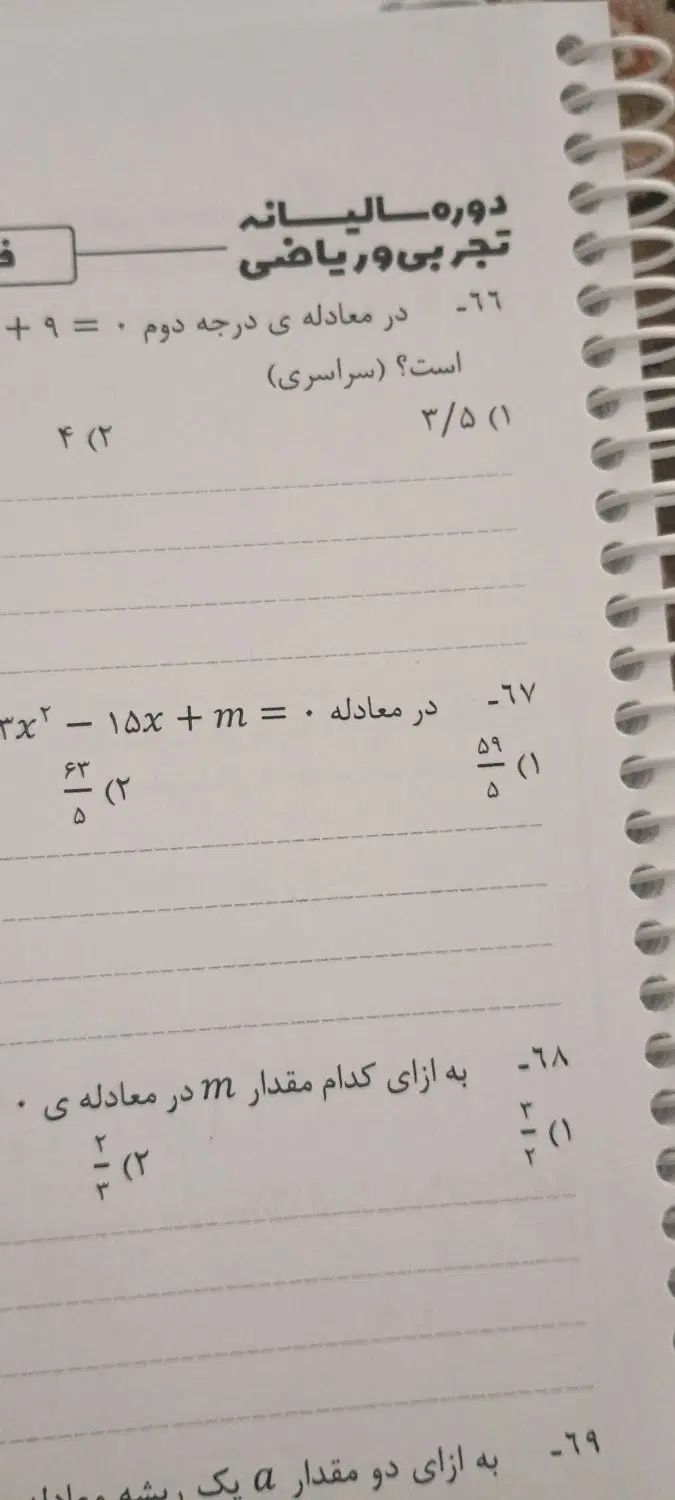 دوره سالیانه
تجربی و ریاضی
۶۶- در معادله ی درجه دوم ۰ = ۹ +
است؟ (سراسری)
۱) ۳/۵ ۲) ۴
۶۷- در معادله ۳x² − ۱۵x + m = ۰
۱) ۵۹/۵ ۲) ۶۳/۵
۶۸- به ازای کدام مقدار m در معادله ی ۰
۱) ۳/۲ ۲) ۲/۳
۶۹- به ازای دو مقدار a یک ریشه